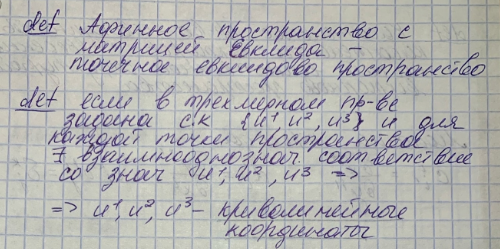 def Афинное пространство с
матрицей Евклида –
точечное евклидово пространство
def если в трехмерном пр-ве
задана с.к {u¹ u², u³} и для
каждой точки пространства
∃ взаимнооднознач. соответствие
со знач u¹, u², u³ =>
=> u¹, u², u³ – криволинейные
координаты